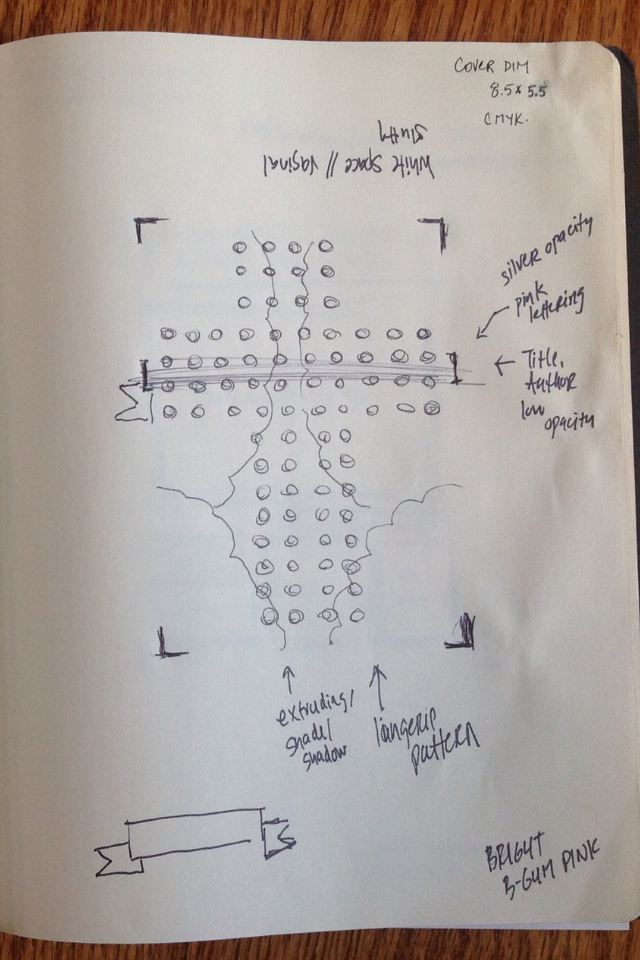 COVER DIM
8.5 x 5.5
CMYK.
White space // vaginal
slutty
silver opacity
pink
lettering
Title,
Author
low
opacity
extruding/
shade/
shadow
pattern
BRIGHT
B-GUM PINK